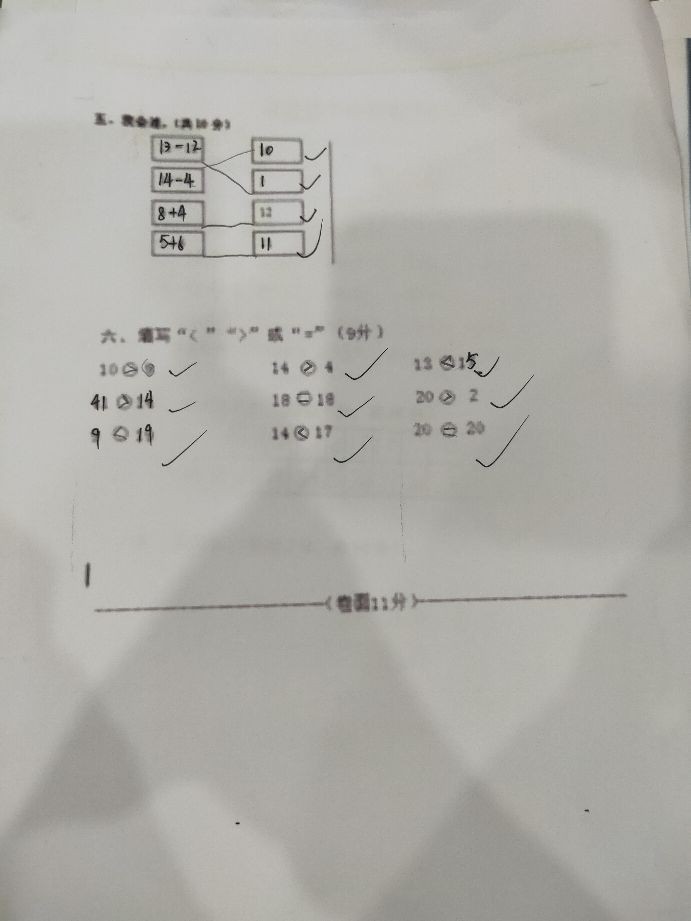 五、我会连。(共10分)
13-12 10
14-4 1
8+4 12
5+6 11
六、填写“<”“>”或“=”(9分)
10 > 14 > 4 13 < 15
41 > 14 18 = 18 20 > 2
9 < 19 14 < 17 20 = 20
(卷面11分)